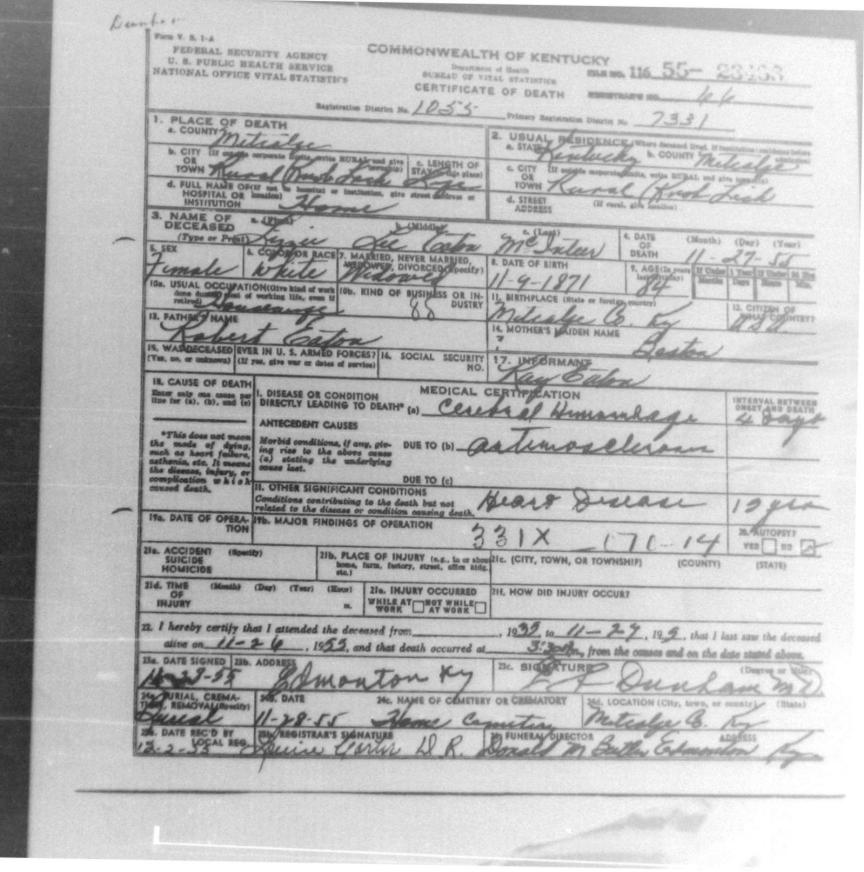 Form V. S. 1-A
FEDERAL SECURITY AGENCY
U. S. PUBLIC HEALTH SERVICE
NATIONAL OFFICE VITAL STATISTICS
COMMONWEALTH OF KENTUCKY
Department of Health
BUREAU OF VITAL STATISTICS
CERTIFICATE OF DEATH
FILE NO. 116 55-
REGISTRAR'S NO. 66
Registration District No. 1055 Primary Registration District No. 7331
1. PLACE OF DEATH
a. COUNTY Metcalfe
2. USUAL RESIDENCE (Where deceased lived. If institution: residence before admission)
a. STATE Kentucky b. COUNTY Metcalfe
b. CITY OR TOWN (If outside corporate limits, write RURAL and give township) Rural
c. LENGTH OF STAY (in this place)
c. CITY OR TOWN (If outside corporate limits, write RURAL and give township) Rural
d. FULL NAME OF HOSPITAL OR INSTITUTION (If not in hospital or institution, give street address or location) Home
d. STREET ADDRESS (If rural, give location)
3. NAME OF DECEASED (Type or Print) a. (First) Lizzie b. (Middle) Lee Eaton c. (Last) McInteer
4. DATE OF DEATH (Month) (Day) (Year) 11-27-55
5. SEX Female
6. COLOR OR RACE White
7. MARRIED, NEVER MARRIED, WIDOWED, DIVORCED (Specify) Widowed
8. DATE OF BIRTH 11-9-1871
9. AGE (In years last birthday) 84 If Under 1 Year Months Days If Under 24 Hrs. Hours Min.
10a. USUAL OCCUPATION (Give kind of work done during most of working life, even if retired)
10b. KIND OF BUSINESS OR INDUSTRY 88
11. BIRTHPLACE (State or foreign country) Metcalfe Co. Ky
12. CITIZEN OF WHAT COUNTRY? USA
13. FATHER'S NAME Robert Eaton
14. MOTHER'S MAIDEN NAME ? Boston
15. WAS DECEASED EVER IN U. S. ARMED FORCES? (Yes, no, or unknown) (If yes, give war or dates of service)
16. SOCIAL SECURITY NO.
17. INFORMANT Ray Eaton
18. CAUSE OF DEATH
Enter only one cause per line for (a), (b), and (c)
MEDICAL CERTIFICATION
INTERVAL BETWEEN ONSET AND DEATH
I. DISEASE OR CONDITION DIRECTLY LEADING TO DEATH* (a) Cerebral Hemorrhage 4 days
ANTECEDENT CAUSES
*This does not mean the mode of dying, such as heart failure, asthenia, etc. It means the disease, injury, or complication which caused death.
Morbid conditions, if any, giving rise to the above cause (a) stating the underlying cause last.
DUE TO (b) arteriosclerosis
DUE TO (c)
II. OTHER SIGNIFICANT CONDITIONS
Conditions contributing to the death but not related to the disease or condition causing death. Heart Disease 10 yrs
19a. DATE OF OPERATION
19b. MAJOR FINDINGS OF OPERATION 331X 171-14
20. AUTOPSY? YES NO
21a. ACCIDENT SUICIDE HOMICIDE (Specify)
21b. PLACE OF INJURY (e.g., in or about home, farm, factory, street, office bldg. etc.)
21c. (CITY, TOWN, OR TOWNSHIP) (COUNTY) (STATE)
21d. TIME OF INJURY (Month) (Day) (Year) (Hour) m.
21e. INJURY OCCURRED WHILE AT WORK NOT WHILE AT WORK
21f. HOW DID INJURY OCCUR?
22. I hereby certify that I attended the deceased from , 1935, to 11-27, 195 , that I last saw the deceased
alive on 11-26, 1955, and that death occurred at 3:30 m., from the causes and on the date stated above.
23a. DATE SIGNED
23b. ADDRESS Edmonton Ky
23c. SIGNATURE Dunham MD (Degree or title)
24a. BURIAL, CREMATION, REMOVAL (Specify) Burial
24b. DATE 11-28-55
24c. NAME OF CEMETERY OR CREMATORY Home Cemetery
24d. LOCATION (City, town, or county) (State) Metcalfe Co. Ky
25a. DATE REC'D BY LOCAL REG. 12-2-55
25b. REGISTRAR'S SIGNATURE Louise Carter D. R.
26. FUNERAL DIRECTOR ADDRESS Donald M Butler Edmonton Ky